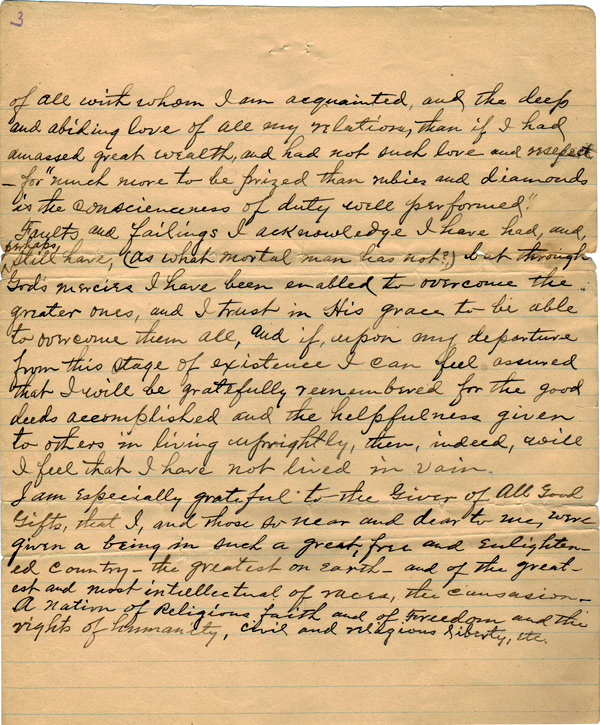 3
of all with whom I am acquainted, and the deep
and abiding love of all my relations, than if I had
amassed great wealth, and had not such love and respect
— for "much more to be prized than rubies and diamonds
is the conscienceness of duty well performed."
Faults, and failings I acknowledge I have had, and,
perhaps,
still have, (as what mortal man has not?,) but through
God's mercies I have been enabled to overcome the
greater ones, and I trust in His grace to be able
to overcome them all, and if, upon my departure
from this stage of existence I can feel assured
that I will be gratefully remembered for the good
deeds accomplished and the helpfulness given
to others in living uprightly, then, indeed, will
I feel that I have not lived in vain.
I am Especially grateful to the Giver of All Good
Gifts, that I, and those so near and dear to me, were
given a being in such a great, free and Enlighten-
ed Country — the greatest on Earth — and of the great-
est and most intellectual of races, the causasion —
A nation of Religious faith and of Freedom and the
rights of humanity, civil and religious liberty, etc.